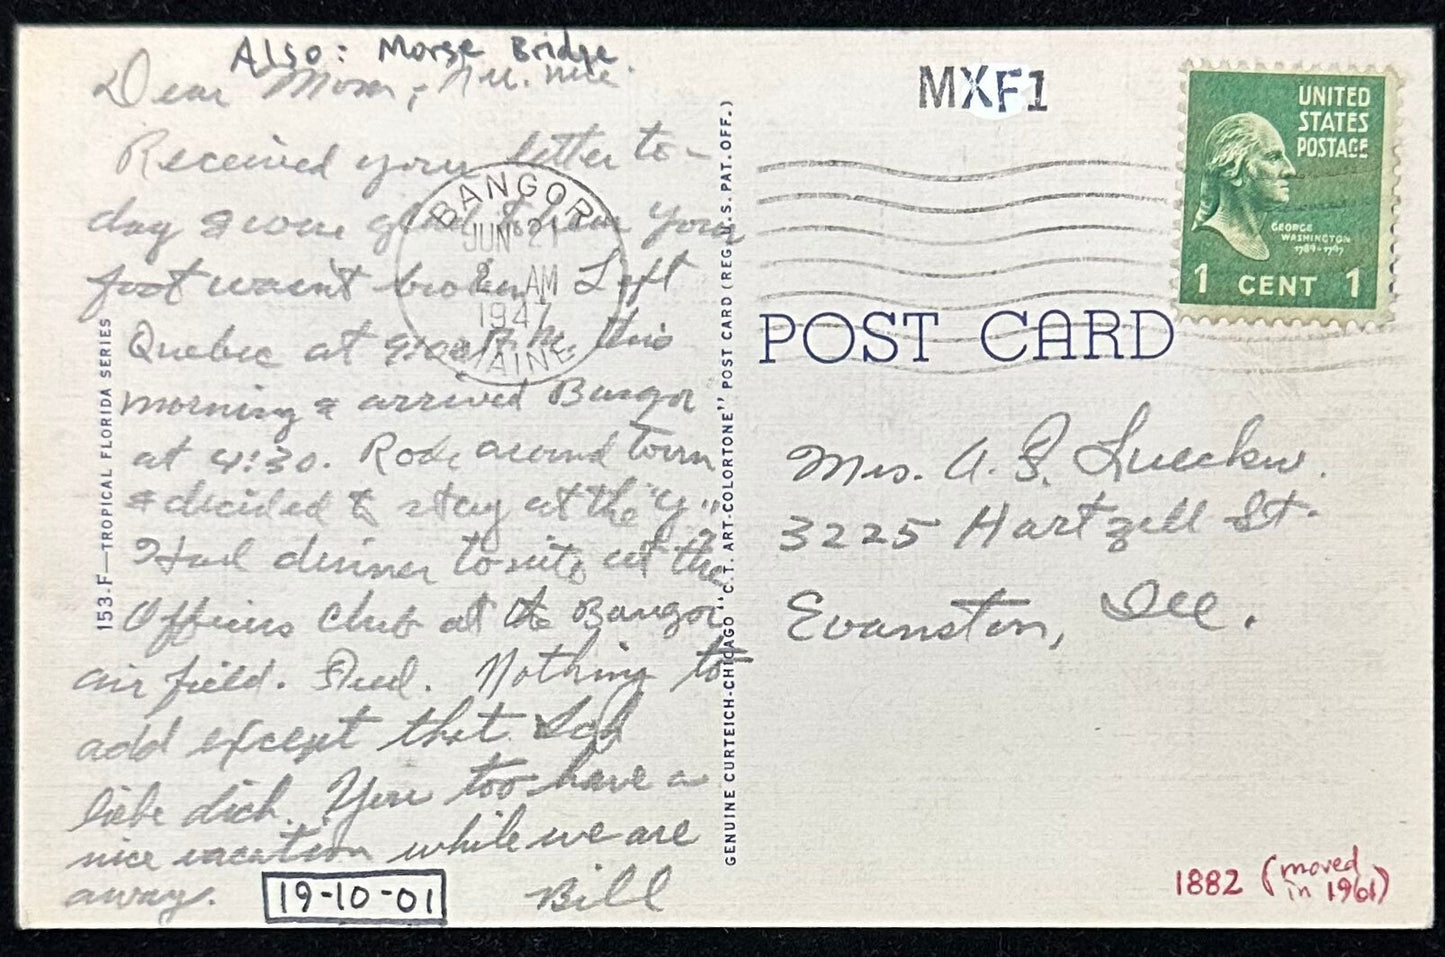 Also: Morse Bridge.
Dear Mom,
Received your letter to-
day & were glad to hear your
foot wasn't broken. Left
Quebec at 9:00 this
morning & arrived Bangor
at 4:30. Rode around town
& decided to stay at the "Y".
Had dinner tonite at the
Officers Club at the Bangor
air field. Nothing to
add except that Ich
liebe dich. You too have a
nice vacation while we are
away.
Bill
19-10-01
153.F—TROPICAL FLORIDA SERIES
BANGOR
JUN 21
AM
1947
MAINE
GENUINE CURTEICH-CHICAGO "C.T. ART-COLORTONE" POST CARD (REG. U.S. PAT. OFF.)
MXF1
UNITED
STATES
POSTAGE
GEORGE
WASHINGTON
1789-1797
1 CENT 1
POST CARD
Mrs. A. G.
3225 Hartzell St.
Evanston, Ill.
1882 (moved
in 1961)